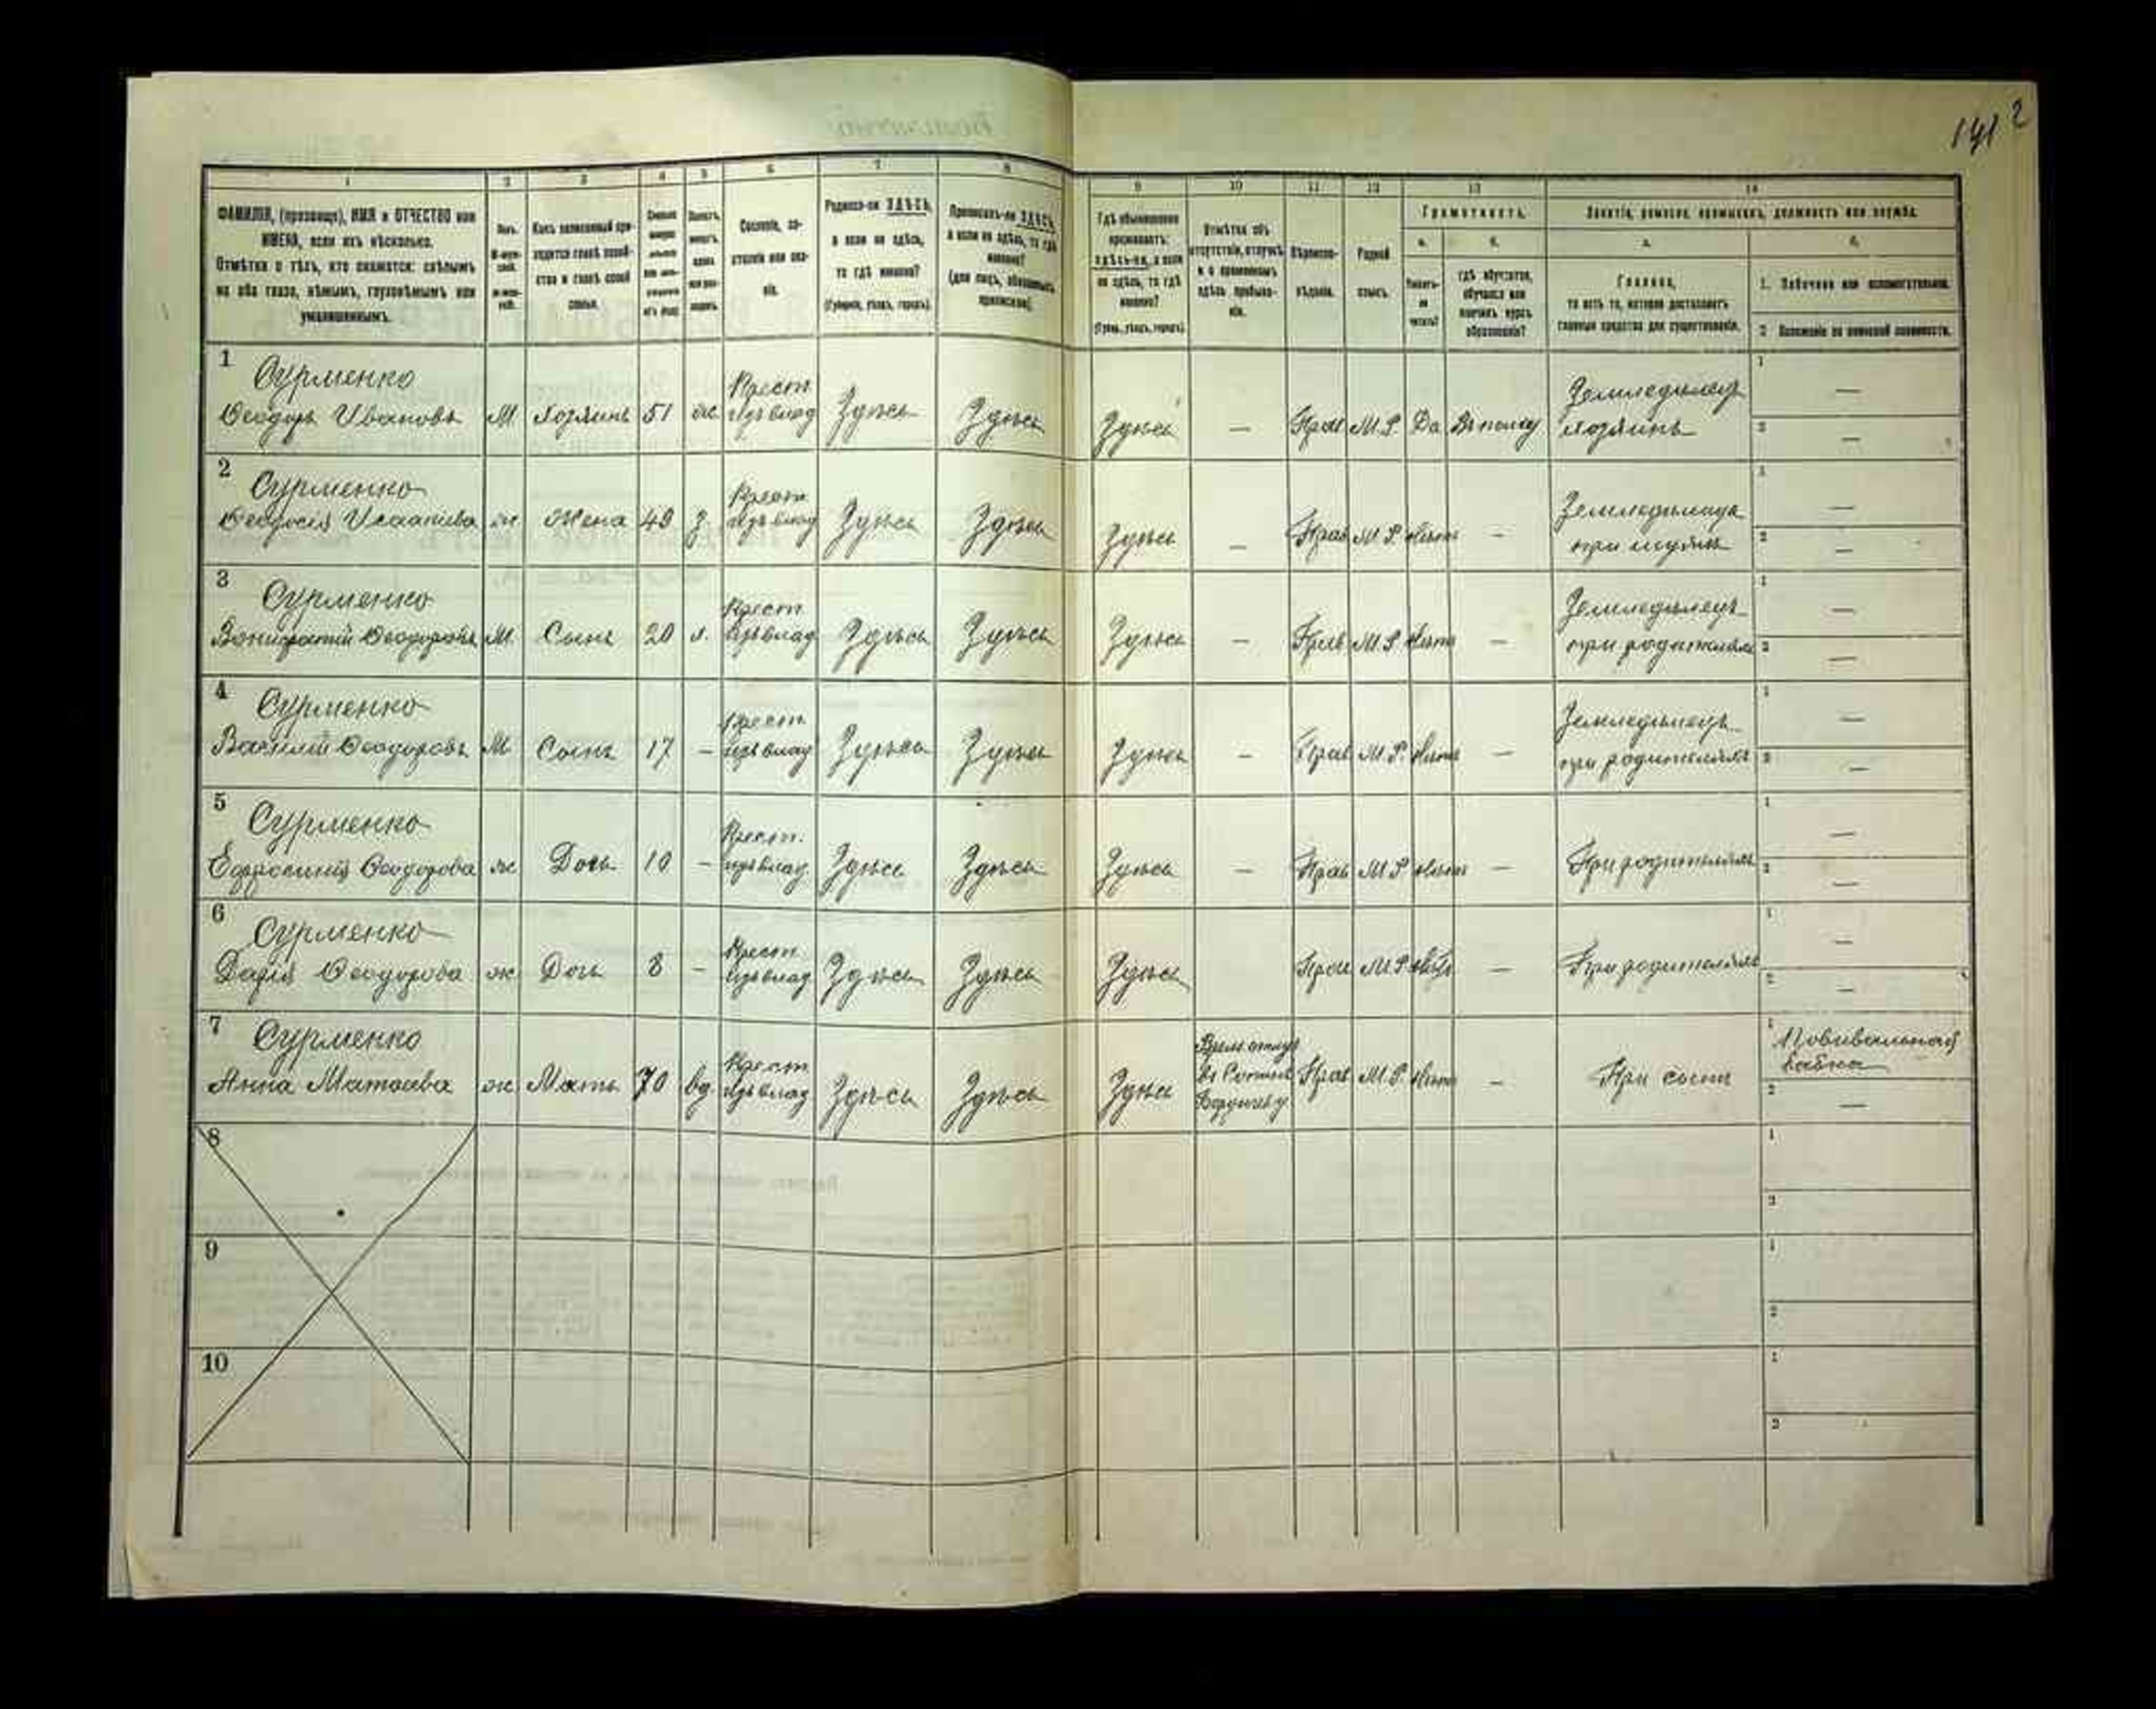 141 2
1 2 3 4 5 6 7 8 9 10 11 12 13 14
ФАМИЛІЯ, (прозвище), ИМЯ и ОТЧЕСТВО или
ИМЕНА, если ихъ нѣсколько.
Отмѣтка о тѣхъ, кто окажется: слѣпымъ
на оба глаза, нѣмымъ, глухонѣмымъ или
умалишеннымъ.
Какъ записанный при-
ходится главѣ хозяй-
ства и главѣ своей
семьи.
Сословіе, со-
стояніе или зва-
ніе.
Родился-ли ЗДѢСЬ,
а если не здѣсь,
то гдѣ именно?
(Губернія, уѣздъ, городъ).
Приписанъ-ли ЗДѢСЬ,
а если не здѣсь, то гдѣ
именно?
(для лицъ, обязанныхъ
припискою).
Гдѣ обыкновенно
проживаетъ:
здѣсь-ли, а если
не здѣсь, то гдѣ
именно?
(Губ., уѣздъ, городъ).
Отмѣтка объ
отсутствіи, отлучкѣ
и о временномъ
здѣсь пребыва-
ніи.
Вѣроиспо-
вѣданіе.
Родной
языкъ.
Грамотность.
а.
б.
гдѣ обучается,
обучался или
кончилъ курсъ
образованія?
Занятіе, ремесло, промыселъ, должность или служба.
а.
Главное,
то есть то, которое доставляетъ
главныя средства для существованія.
б.
1. Побочное или вспомогательное.
2. Положеніе по воинской повинности.
1 Сурменко
Ѳеодоръ Ивановъ М Хозяинъ 51 ж. Крест. изъ влад Здѣсь Здѣсь Здѣсь — Прав М.Р. Да Въ полку Земледѣлец хозяинъ 1 — 2 —
2 Сурменко
Ѳеодосія Исаакіева ж Жена 49 з. Крест. изъ влад Здѣсь Здѣсь Здѣсь — Прав М.Р Нѣтъ — Земледѣлица при мужѣ 1 — 2 —
3 Сурменко
Вонифатій Ѳеодоровъ М Сынъ 20 х. Крест. изъ влад Здѣсь Здѣсь Здѣсь — Прав М.Р Нѣтъ — Земледѣлецъ при родителяхъ 1 — 2 —
4 Сурменко
Василій Ѳеодоровъ М Сынъ 17 — Крест. изъ влад Здѣсь Здѣсь Здѣсь — Прав М.Р. Нѣтъ — Земледѣлецъ при родителяхъ 1 — 2 —
5 Сурменко
Ефросинія Ѳеодорова ж Дочь 10 — Крест. изъ влад Здѣсь Здѣсь Здѣсь — Прав М.Р Нѣтъ — При родителяхъ 1 — 2 —
6 Сурменко
Дарія Ѳеодорова ж Дочь 8 — Крест. изъ влад Здѣсь Здѣсь Здѣсь Прав М.Р — При родителяхъ 1 — 2 —
7 Сурменко
Анна Матѳіева ж Мать 70 вд. Крест. изъ влад Здѣсь Здѣсь Здѣсь Прав М.Р. Нѣтъ — При сынѣ 1 Повивальная бабка 2 —
8 1 2
9 1 2
10 1 2